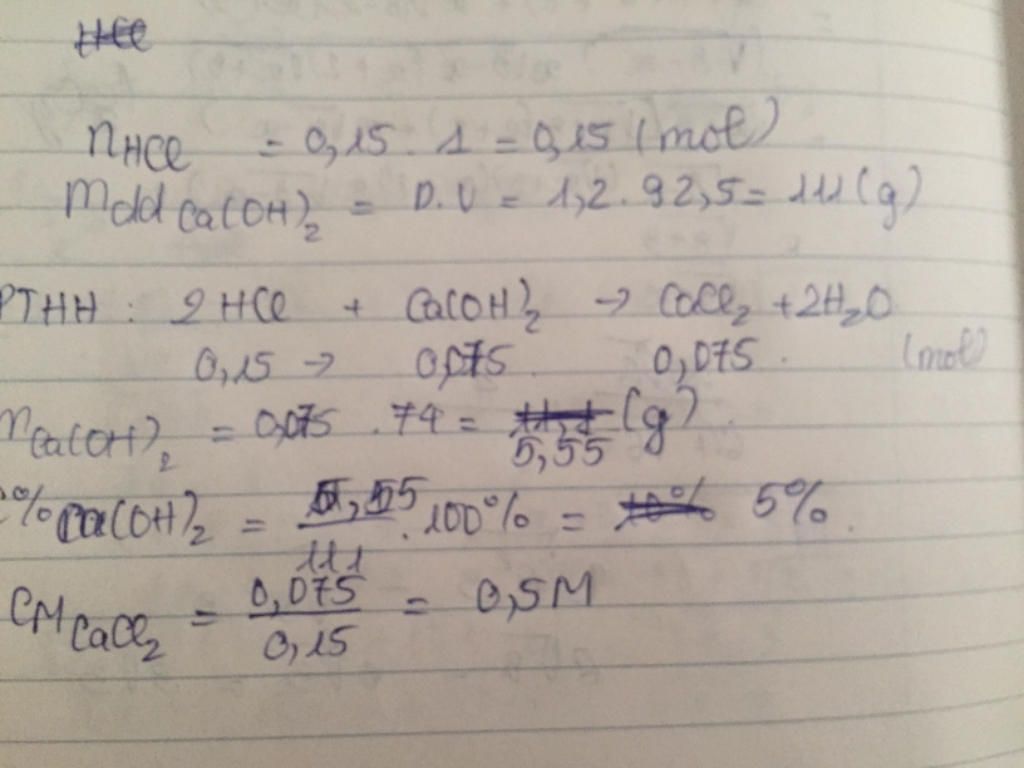 HCl
nHCl = 0,15 . 1 = 0,15 (mol)
mdd Ca(OH)2 = D.V = 1,2 . 92,5 = 111 (g)
PTHH : 2HCl + Ca(OH)2 → CaCl2 + 2H2O
0,15 → 0,075 0,075 . (mol)
mCa(OH)2 = 0,075 . 74 = 11,1 (g)
5,55
C% Ca(OH)2 = 5,55/111 . 100% = 10% 5% .
CM CaCl2 = 0,075/0,15 = 0,5M